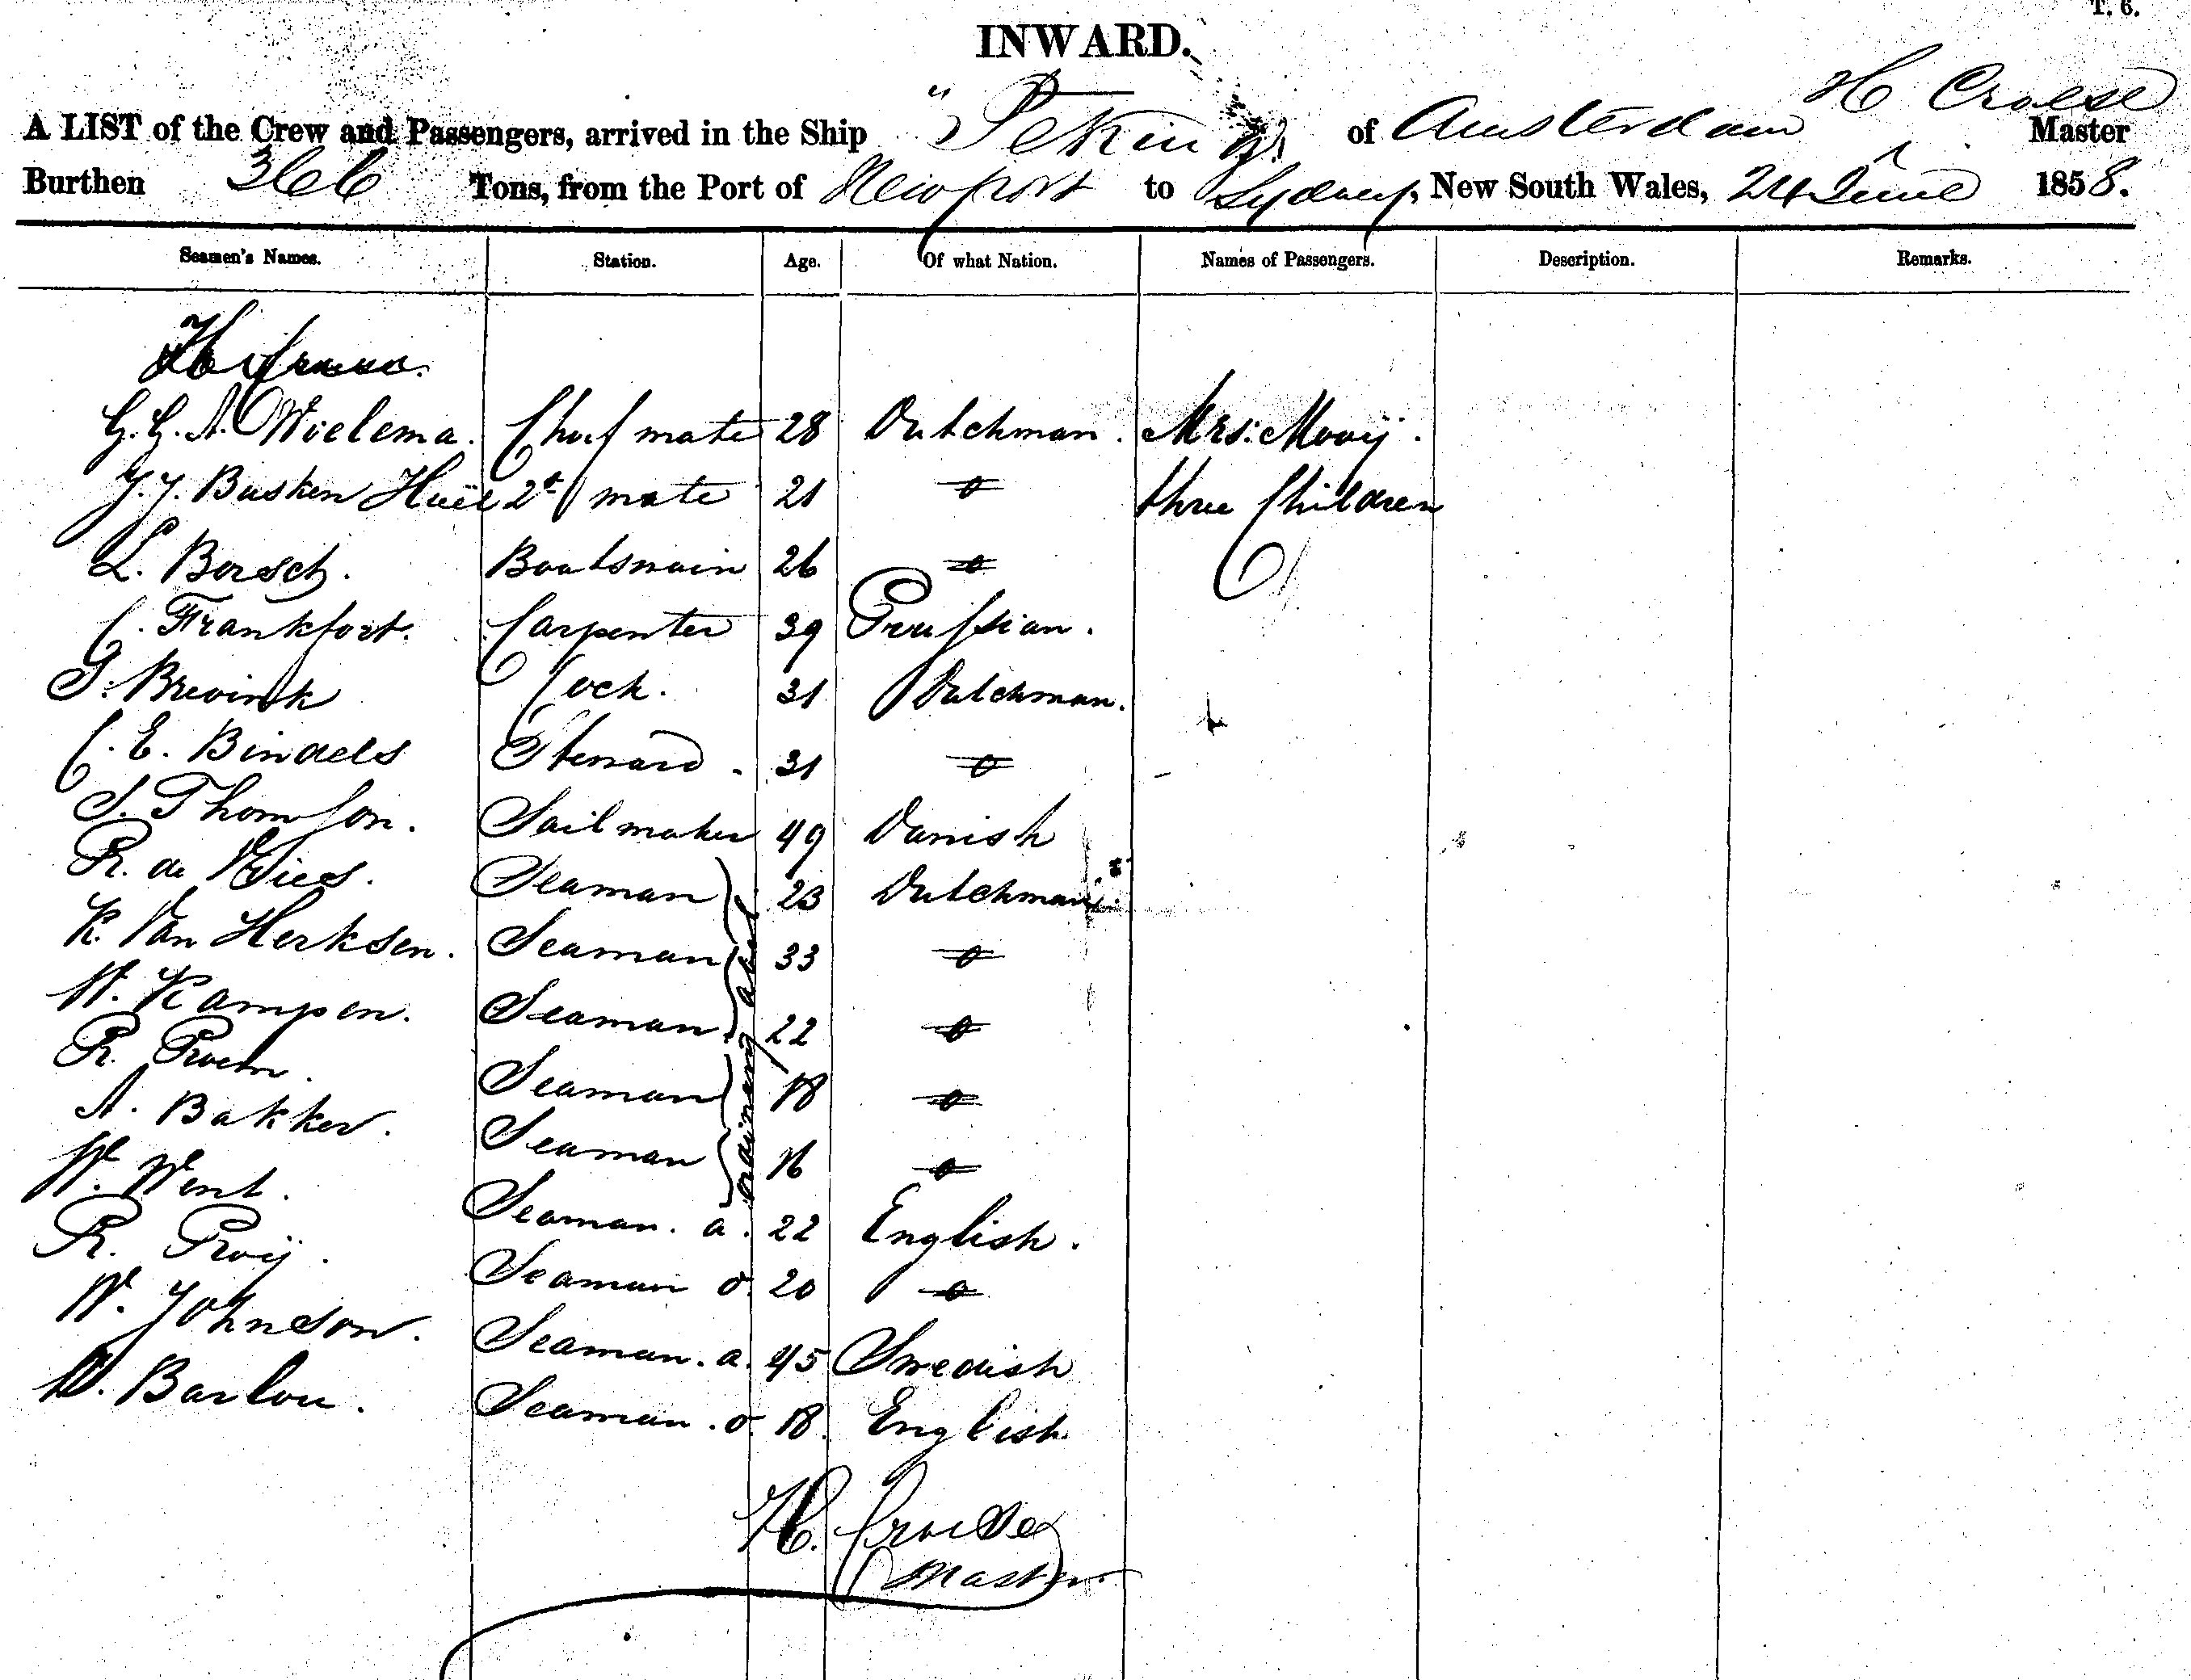 T. 6.
INWARD.
A LIST of the Crew and Passengers, arrived in the Ship "Peking" of Amsterdam H Croese Master
Burthen 366 Tons, from the Port of Newport to Sydney, New South Wales, 24 June 1858.
Seamen's Names. Station. Age. Of what Nation. Names of Passengers. Description. Remarks.
G. G. A. Wielema. Chief mate 28 Dutchman. Mrs: Mooij.
J. J. Busken Huët 2d mate 21 three Children
L. Borsch. Boatswain 26
C. Frankfort. Carpenter 39 Prussian.
G. Brevink Cock. 31 Dutchman.
C. E. Bindels Steward. 31
S. Thomson. Sailmaker 49 Danish
R. de Vries. Seaman 23 Dutchman.
K. Van Herksen. Seaman 33
W. Kampen. Seaman 22
able
R. Proem. Seaman 18
A. Bakker. Seaman 16
ordinary
W. Went. Seaman. a. 22 English.
R. Proij. Seaman o. 20
W. Johnson. Seaman. a. 45 Swedish
W. Barlou. Seaman. o. 18. English
H. Croese
Master